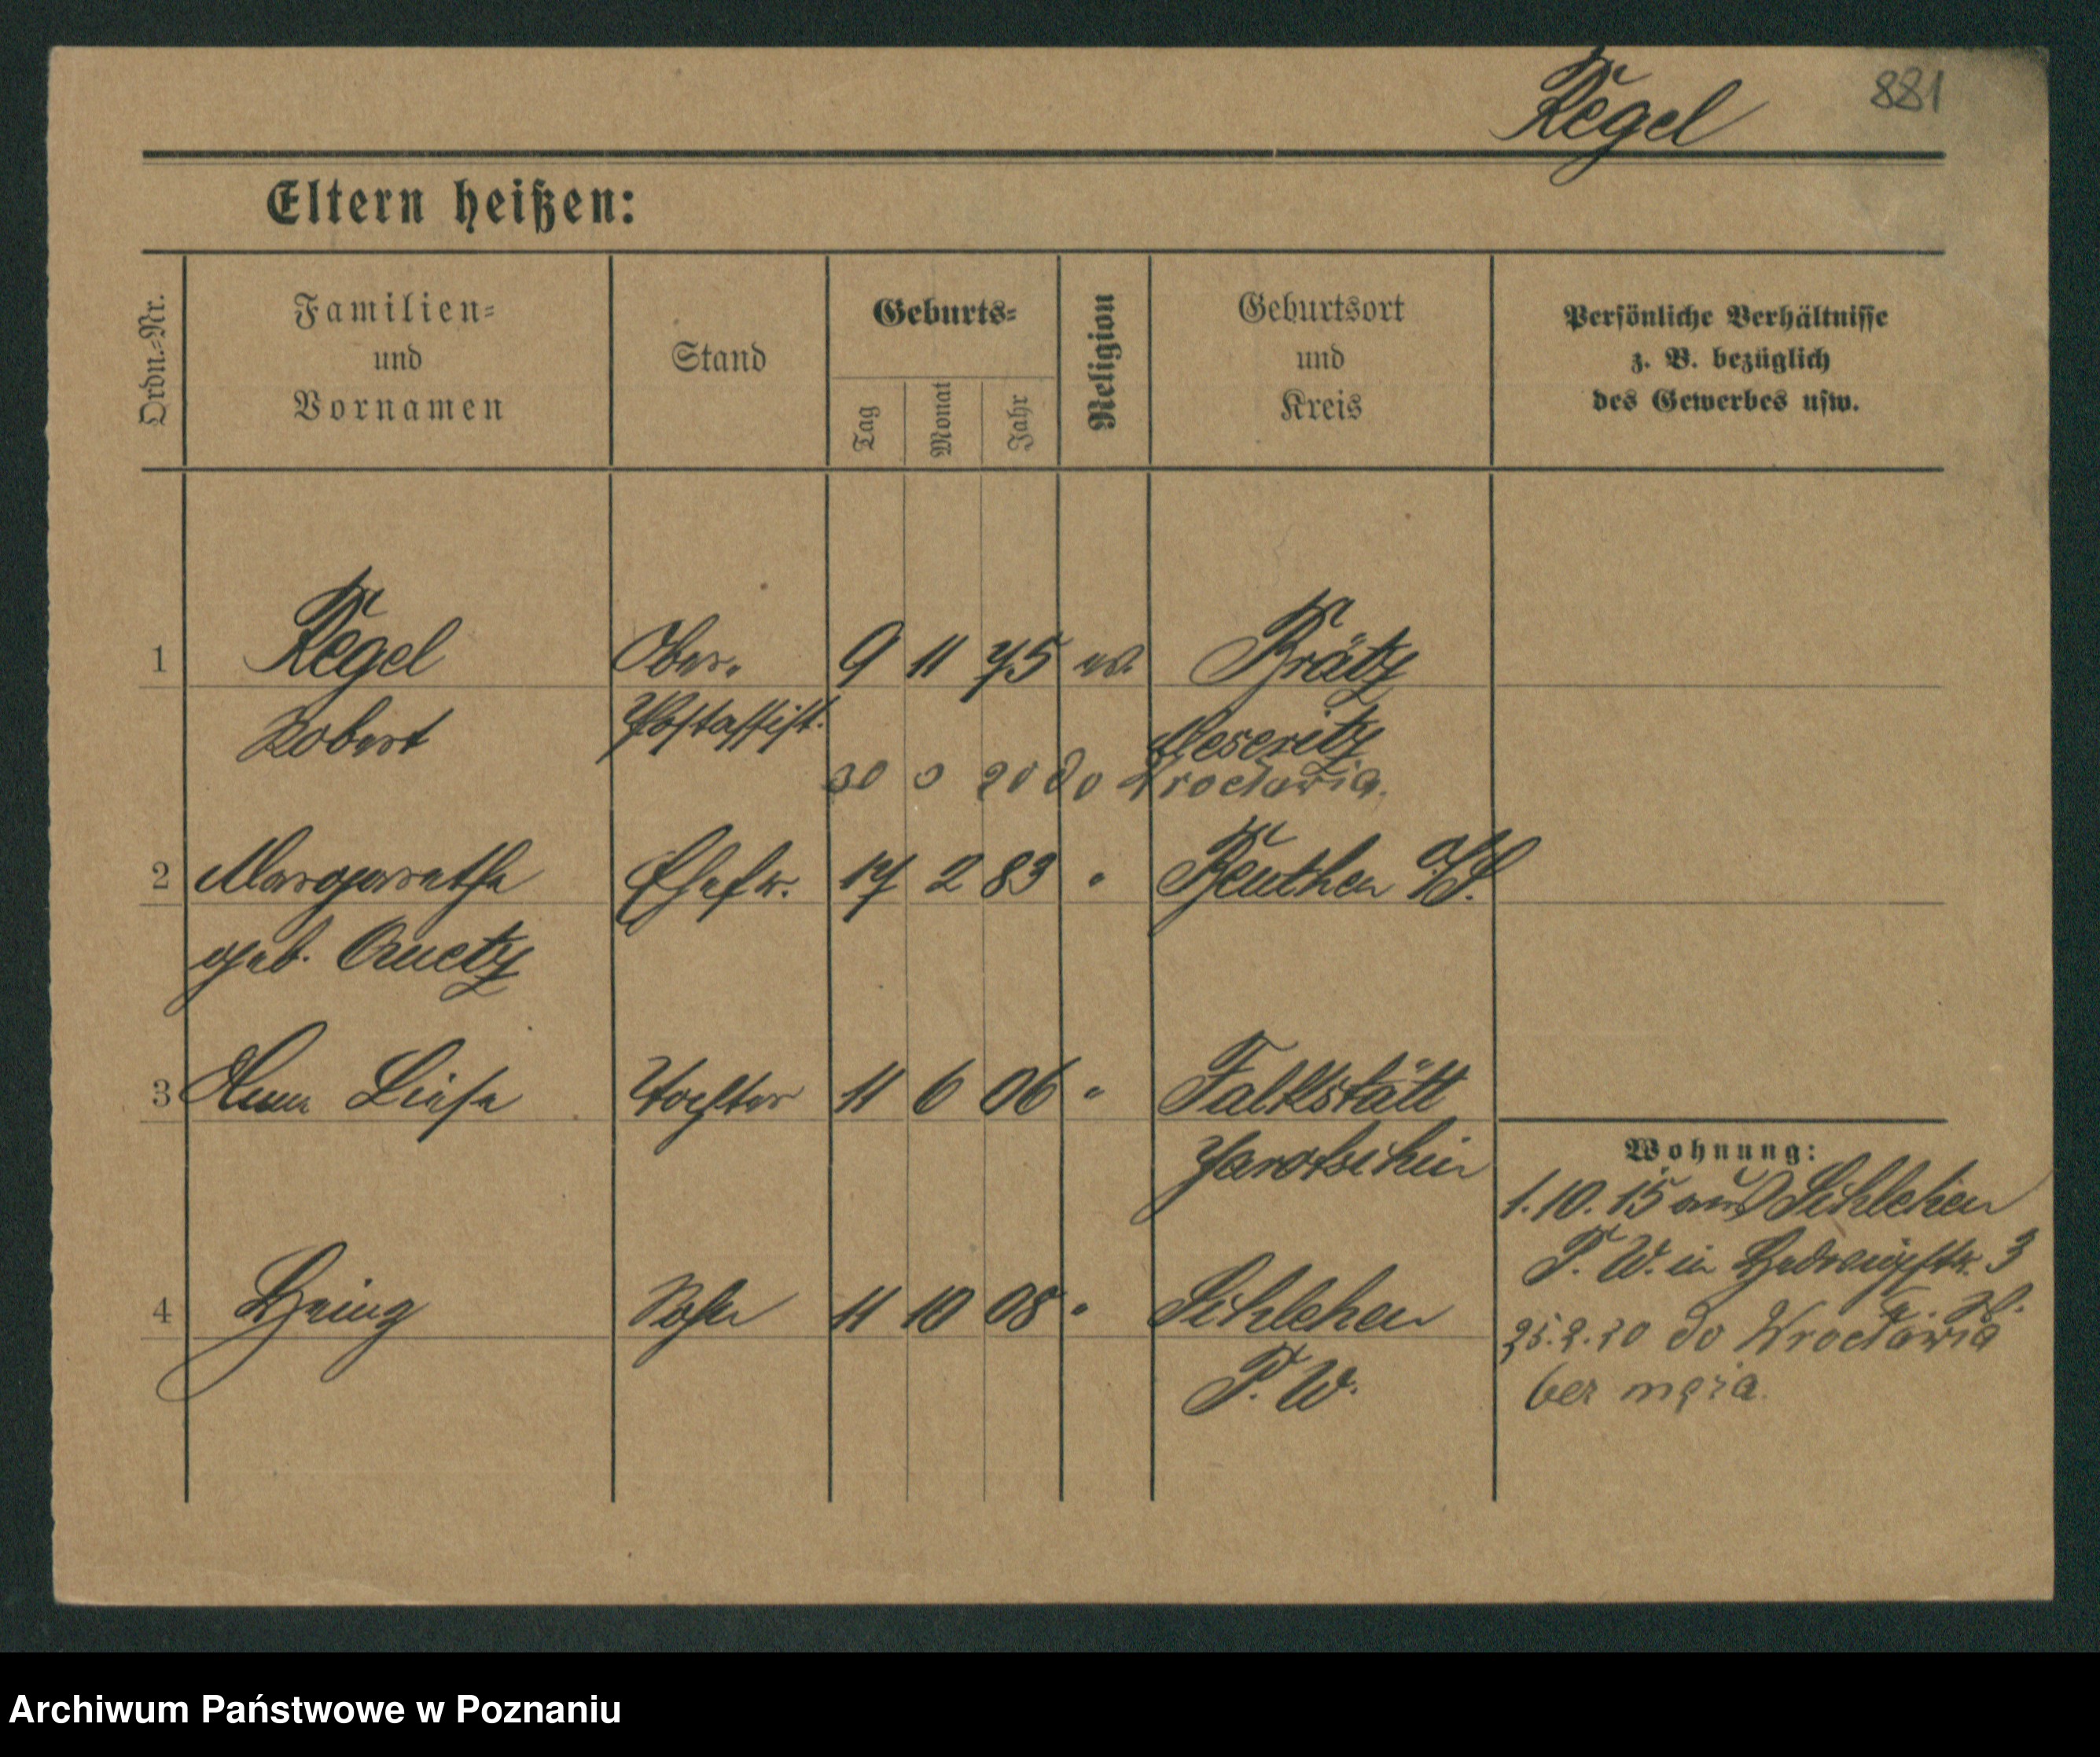 Regel
881
Eltern heißen:
Ordn.-Nr.
Familien-
und
Vornamen
Stand
Geburts-
Tag
Monat
Jahr
Religion
Geburtsort
und
Kreis
Persönliche Verhältnisse
z. B. bezüglich
des Gewerbes usw.
1 Regel Ober- 9 11 75 ev. Brätz
Robert Postassist. Meseritz
20 do Wrocławia.
2 Margarethe Ehefr. 17 2 83 " Beuthen O/S.
geb. Quetz
3 Anna Liese Tochter 11 6 06 " Falkstätt
Jarotschin
4 Heinz Sohn 11 10 08 " Schlehen
P. W.
Wohnung:
1.10.15 aus Schlehen
P. W. in Hedwigstr. 3
25.2.20 do Wrocławia
bez męża